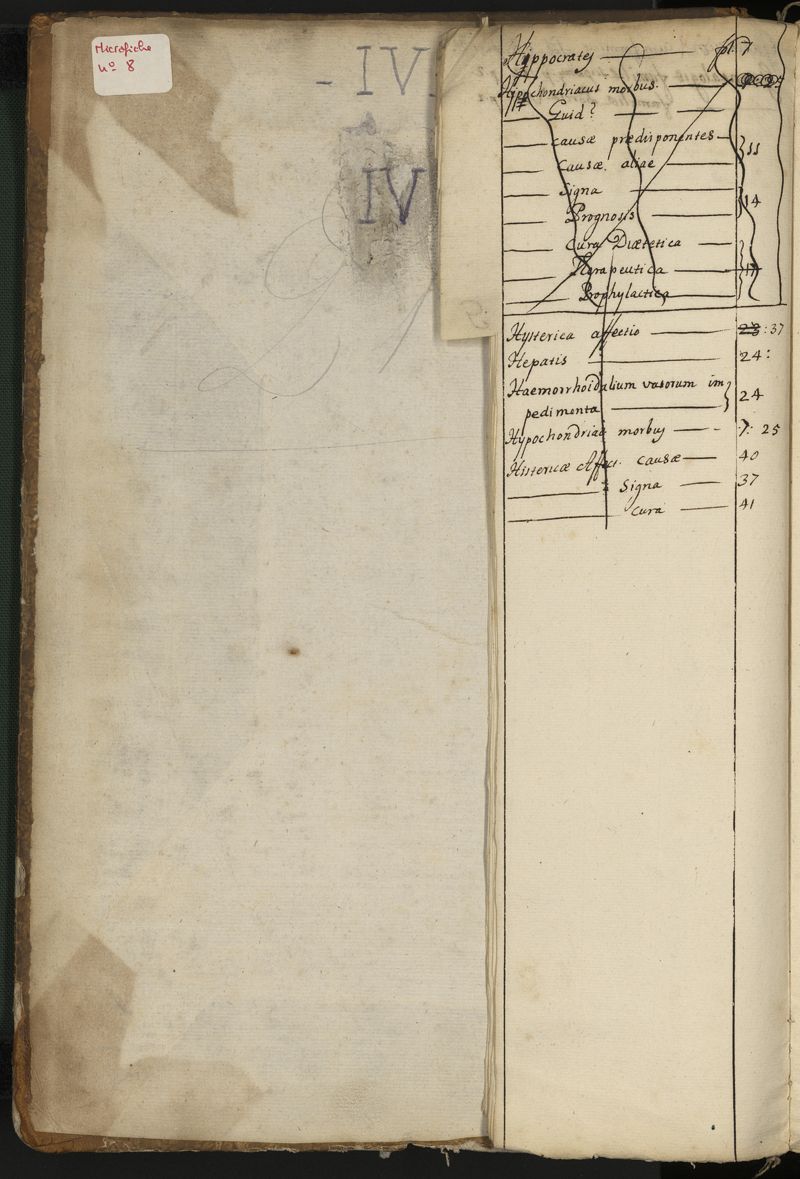 Microfiche
nº 8
- IV.
IV
Hyppocrates — pl. 7
Hypochondriacus morbus. —
— Quid? — —
— causæ prædisponentes — } 11
— Causæ aliae —
— Signa — } 14
— Prognosis —
— Cura Diætetica — } 17
— Therapeutica —
— Prophylactica —
Hysterica affectio — 23: 37
Hepatis — 24:
Haemorrhoidalium vasorum im } 24
pedimenta —
Hypochondriac morbus — - 7: 25
Histericæ Affect. causæ — 40
— Signa — 37
— Cura — 41